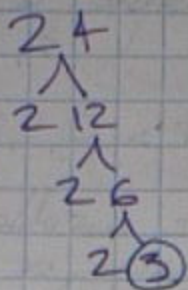 24
2 12
2 6
2 3